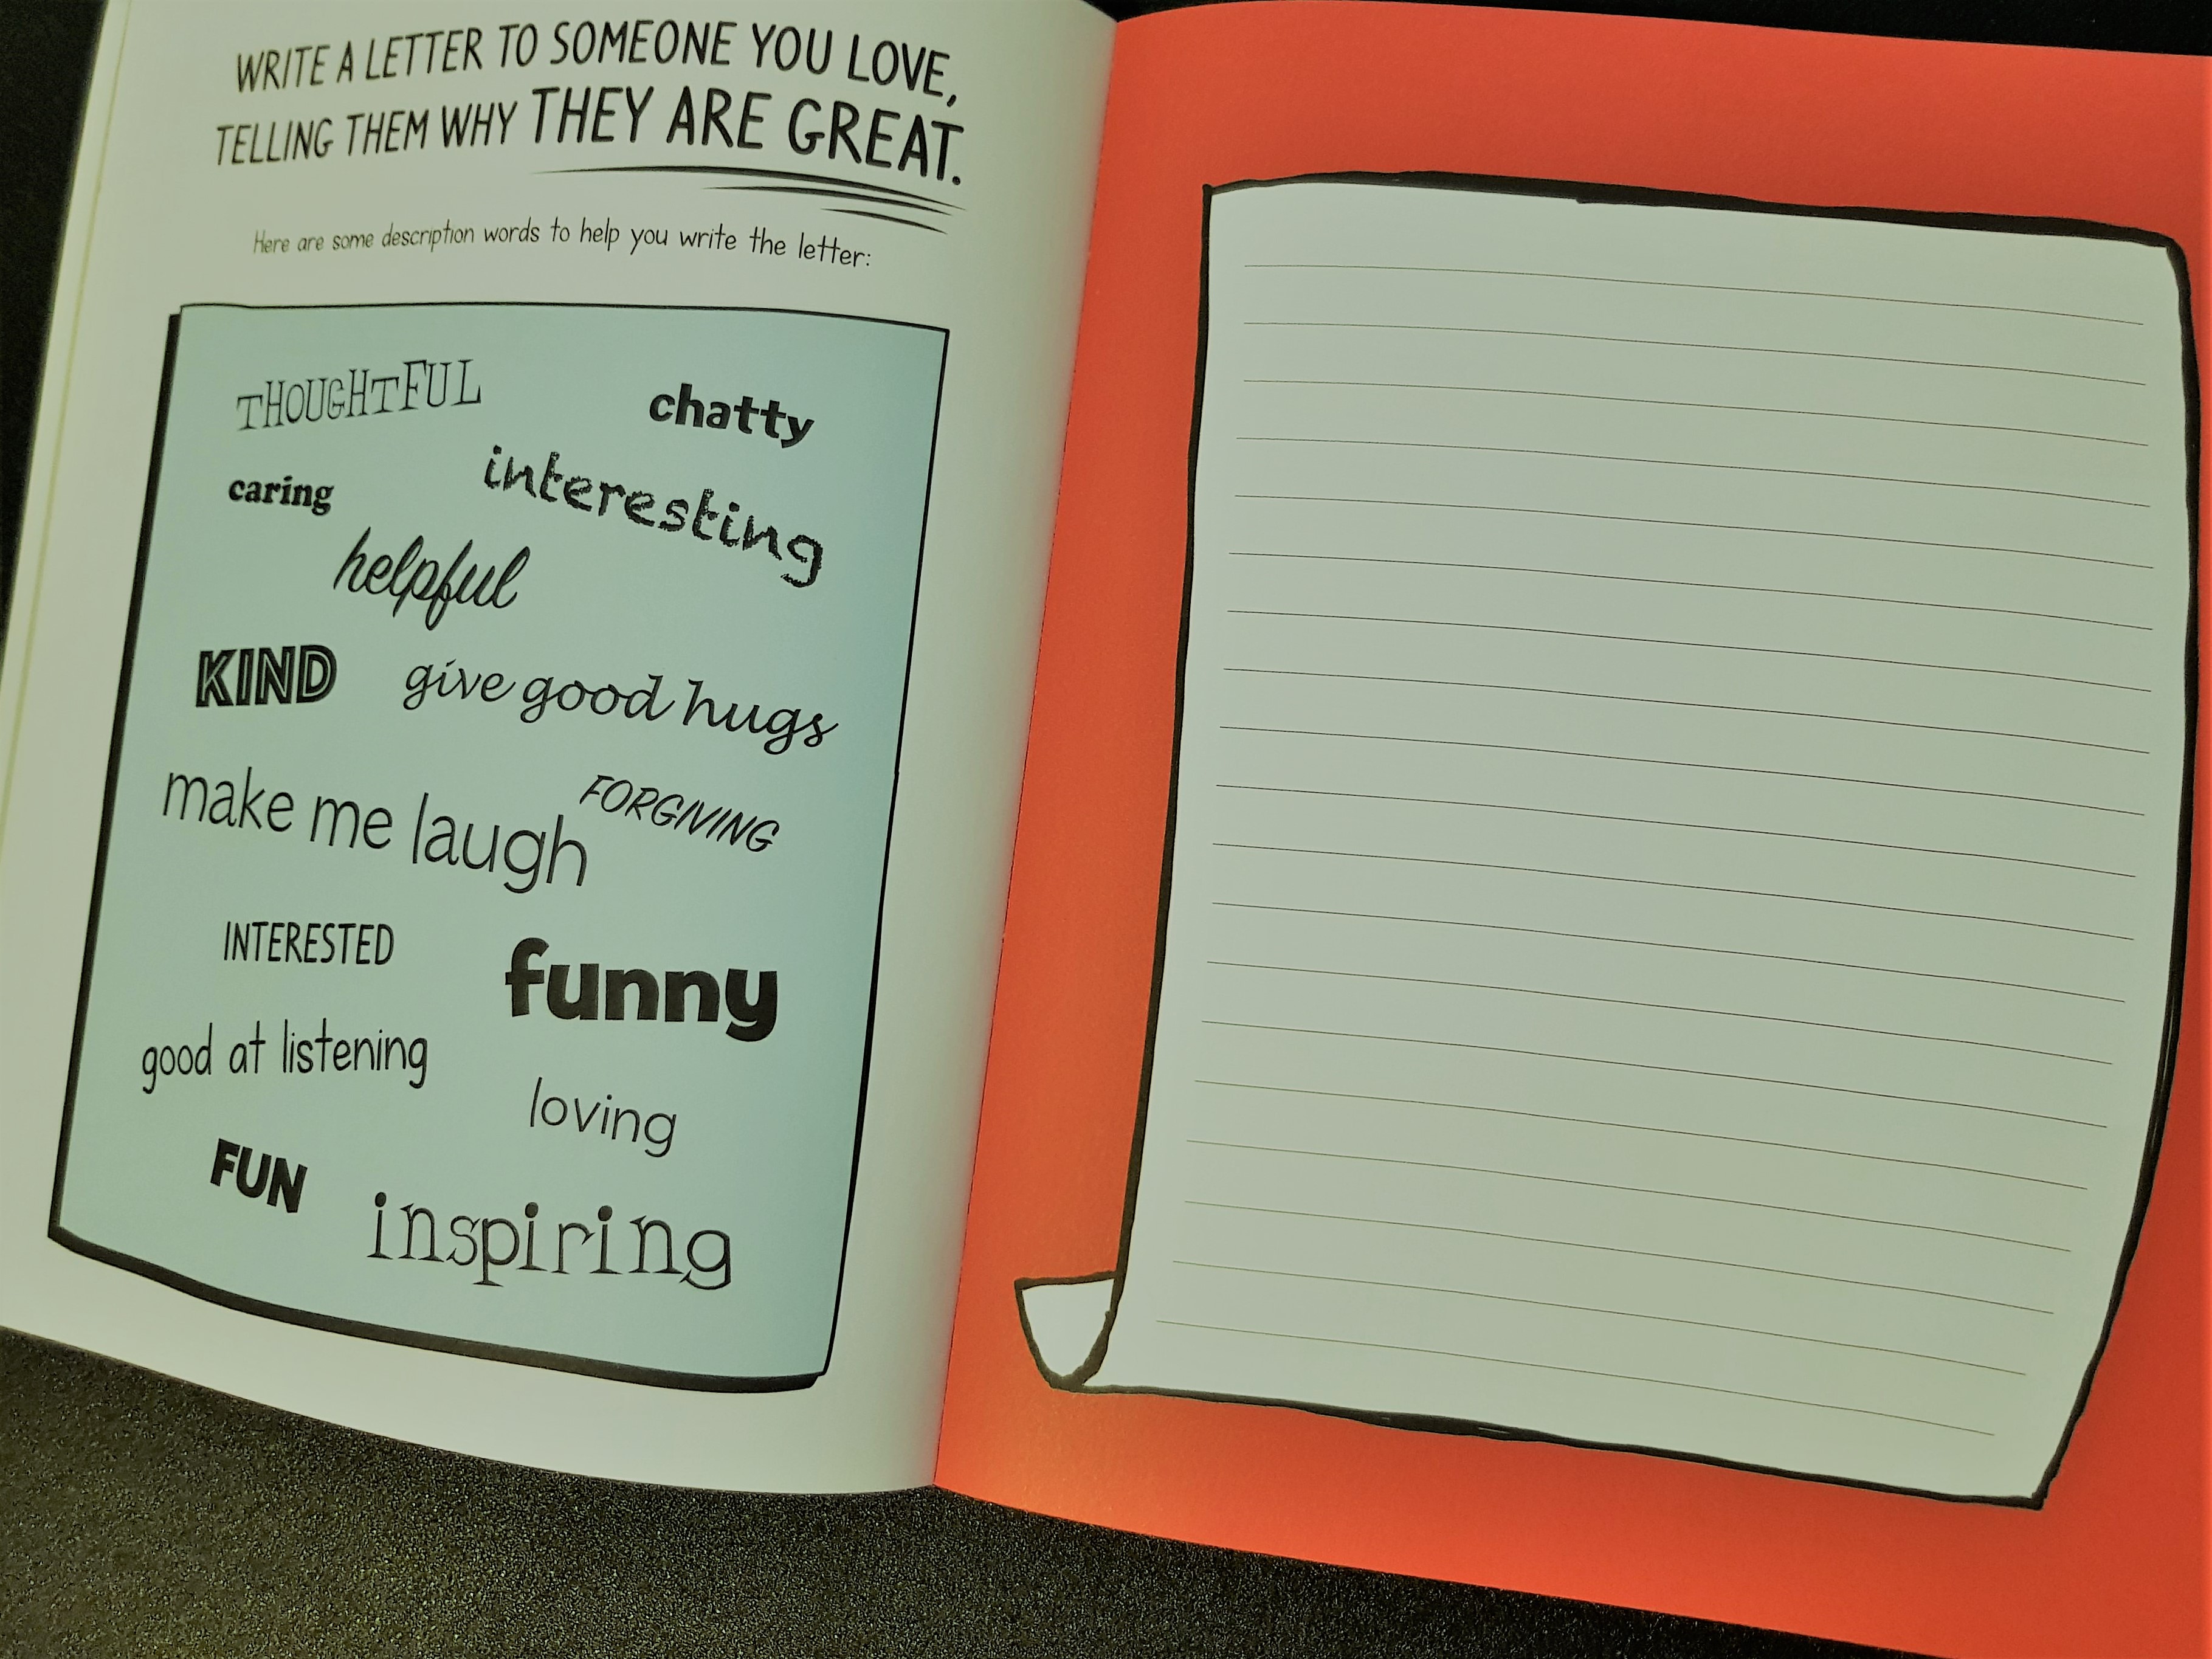 WRITE A LETTER TO SOMEONE YOU LOVE,
TELLING THEM WHY THEY ARE GREAT.
Here are some description words to help you write the letter:
THOUGHTFUL
chatty
caring
interesting
helpful
KIND
give good hugs
make me laugh
FORGIVING
INTERESTED
funny
good at listening
loving
FUN
inspiring